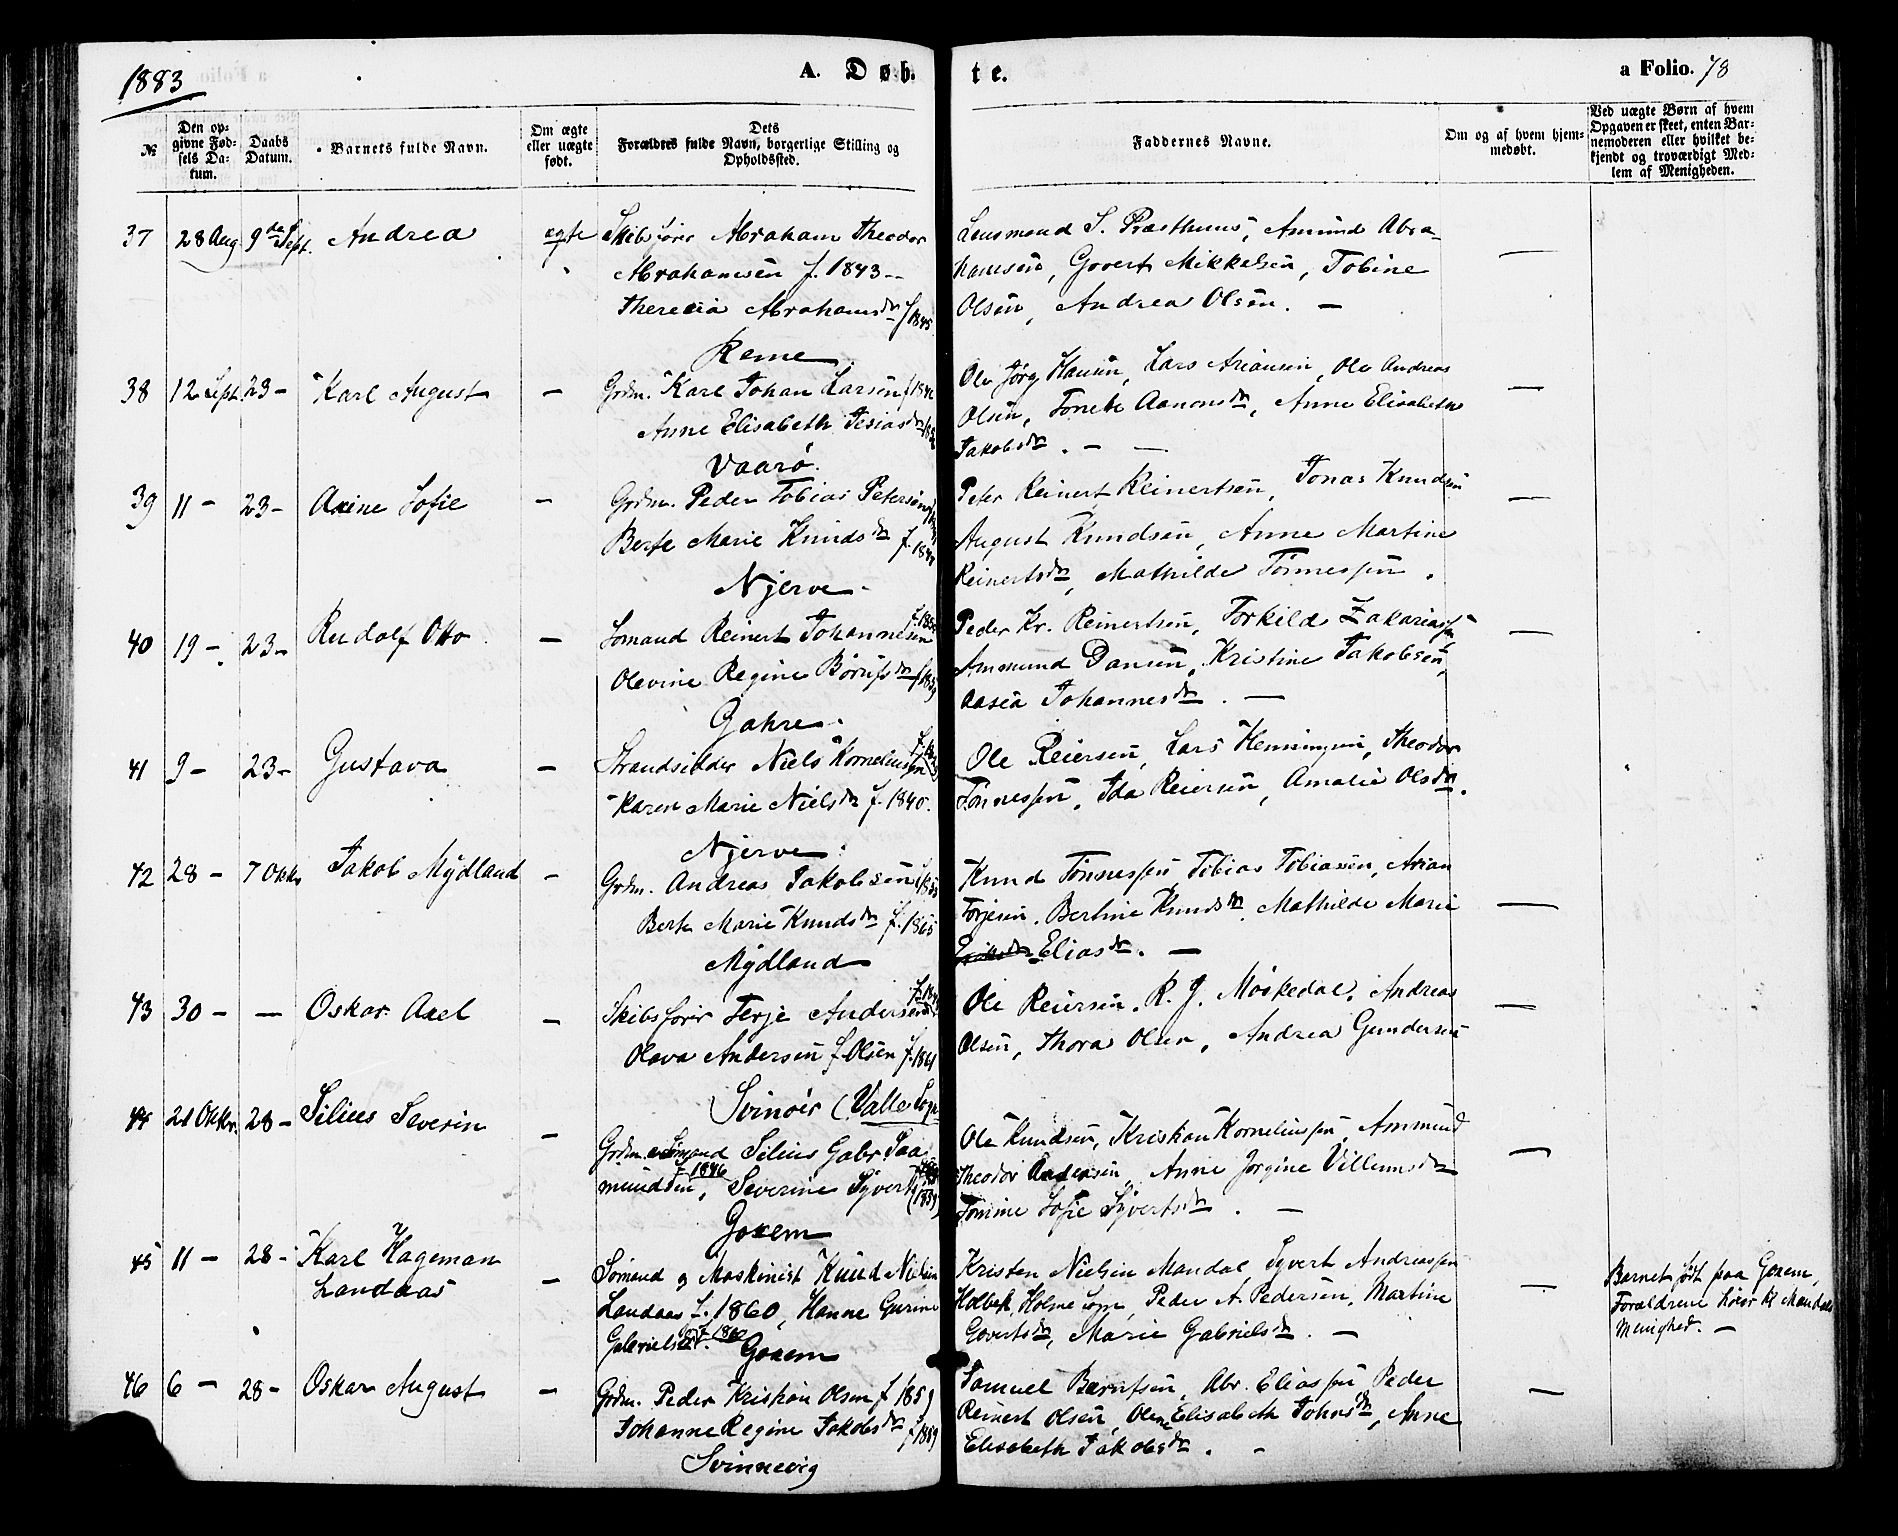 1883
A. Døb-
te.
a Folio. 78
№
Den op-
givne Fød-
sels Da-
tum.
Daabs
Datum.
Barnets fulde Navn.
Om ægte
eller uægte
født.
Dets
Forældres fulde Navn, borgerlige Stilling og
Opholdssted.
Faddernes Navne.
Om og af hvem hjem-
medøbt.
Ved uægte Børn af hvem
Opgaven er skeet, enten Bar-
nemoderen eller hvilket be-
kjendt og troværdigt Med-
lem af Menigheden.
37 28 Aug 9de Sept. Andrea egte Skibsfører Abraham Theodor
Abrahamsen f. 1843 -
Theresia Abrahamsdr f 1845
Reme
Lensmand S. Præsthuus, Amund Abra-
hamsen, Govert Mikkelsen, Tobine
Olsen, Andrea Olsen. —
38 12 Sept. 23 - Karl August — Grdm. Karl Johan Larsen
Anne Elisabeth Jesiasdr
Vaarø.
Ole Jørg Hansen, Lars Ariansen, Ole Andreas
Olsen, Tonette Aanonsdr, Anne Elisabeth
Jakobsdr. — —
39 11 - 23 - Axine Sofie — Grdm. Peder Tobias Petersen
Berte Marie Knudsdr f.
Njerve -
Peter Reinert Reinertsen, Jonas Knudsen
August Knudsen, Anne Martine
Reinertsdr, Mathilde Tønnessen.
40 19 - 23 - Rudolf Otto — Sømand Reinert Johannesen
Olevine Regine
Gahre.
Peder Kr. Reinertsen, Torkild Zakariassen
Ammund Danen, Kristine Jakobsen,
Aasea Johannesdr. —
41 9 - 23 - Gustava — Strandsidder Niels Korneliussen
Karen Marie Nielsdr f. 1840.
Njerve.
Ole Reiersen, Lars Henningsen, Theodor
Tønnessen, Ida Reiersen, Amalie Olsdr.
42 28 - 7 Oktr Jakob Mydland - Grdm. Andreas Jakobsen
Berte Marie Knudsdr f. 1865
Mydland
Knud Tønnessen Tobias Tobiassen, Arian
Terjesen, Bertine Knudsdr, Mathilde Marie
Eliasdr. —
43 30 - — Oskar Axel — Skibsfører Terje Andersen
Olava Andersen f. Olsen f. 1861
Svinøer (Valle Sogn
Ole Reiersen, R. J. Møskedal, Andreas
Olsen, Thora Olsen, Andrea Gundersen
44 21 Oktr. 28 - Silius Severin — Grdm. Sømand Silius Gabr. Saa-
mundsen, 1846 Severine Syvertsdr
Goxem
Ole Knudsen, Kristian Korneliussen, Ammund
Theodor Andersen, Anne Jørgine Villumsdr
Tomine Sofie Syvertsdr. —
45 11 - 28 - Karl Hageman
Landaas — Sømand og Maskinist Knud Nielsen
Landaas f. 1860, Hanne Gurine
Gabrielsdr f. 1860
Goxem
Kristen Nielsen Mandal, Syvert Andreassen
Holbek Holme Sogn, Peder A. Pedersen, Martine
Govertsdr, Marie Gabrielsdr. —
Barnet født paa Goxem,
Forældrene hører til Mandals
Menighed. —
46 6 - 28 - Oskar August — Grdm. Peder Kristian Olsen f 1859
Johanne Regine Jakobsdr f 1859
Svinnevig
Samuel Berntsen, Abr. Eliassen Peder
Reinert Olsen, Olene Elisabeth Johnsdr, Anne
Elisabeth Jakobsdr. -